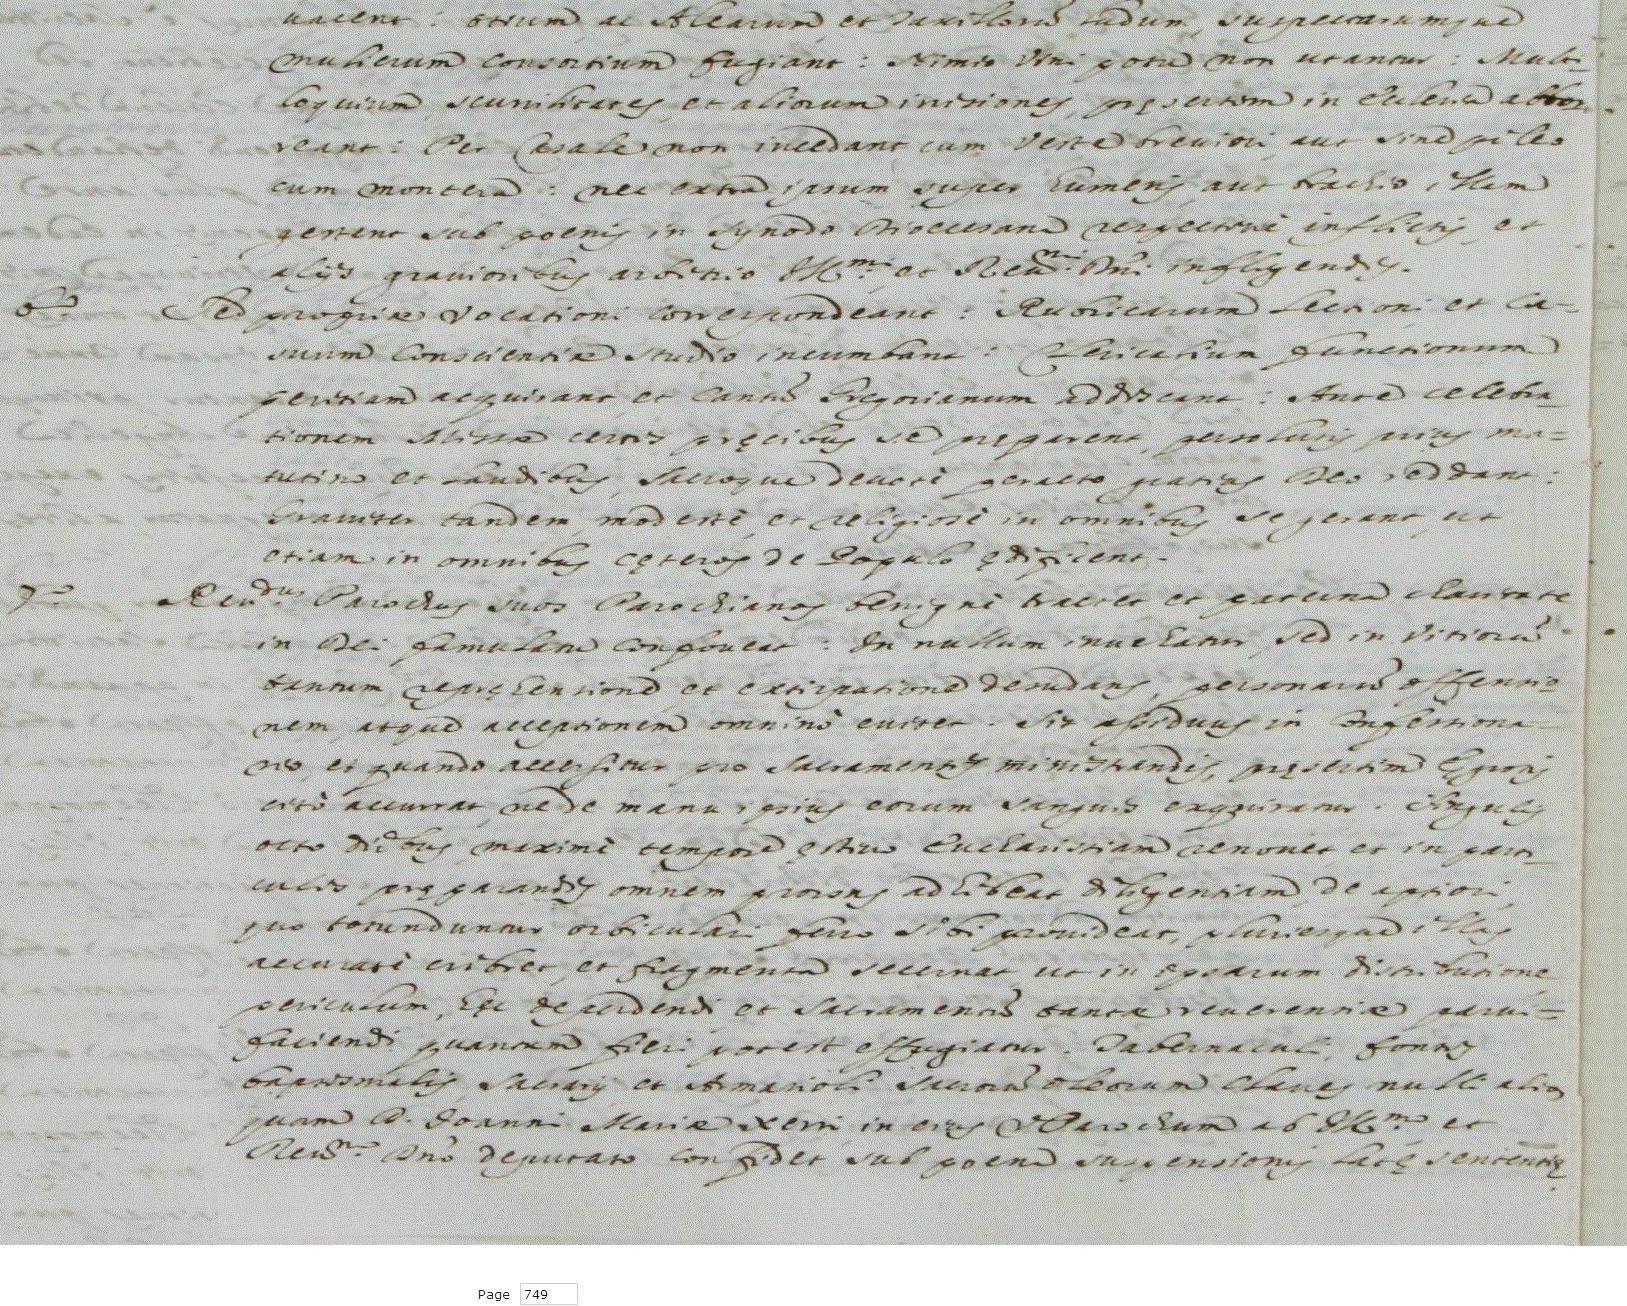 uacent: otium ac Alearum, et Taxillorũ ludum, suspectarumque
mulierum consortium fugiant: Nimio vini potu non utantur: Multi-
loquium, scurrilitates, et aliorum irrisiones, pręsertim in Ecclesia abhor-
reant: Per Casale non incedant cum veste breuiori, aut sine pileo
cum montera: nec extra ipsum super humeris, aut brachio illam
gestent sub poenis in Synodo Dioecesana respectiuè inflictis, et
alijs grauioribus arbitrio Ill.mi et Reu.mi Dñi infligendis.
6.º Sed propriæ vocationi correspondeant: Rubricarum lectioni et Ca-
suum Conscientiæ studio incumbant: Clericalium functionum
peritiam acquirant et Cantũ Gregorianum addiscant: Ante celebra-
tionem Missæ certis pręcibus se pręparent, persolutis prius ma-
tutino et laudibus, Sacroque deuotè peracto gratias Deo reddant:
Grauiter tandem, modestè, et religiosè in omnibus se gerant, ut
etiam in omnibus cęteros de Populo ędificent.
7.º Reu.dus Parochus suos Parochianos benignè tractet et paterna charitate
in Dei famulatu confoueat: In nullum inuehatur, sed in vitiorũ
tantum repręhensione et extirpatione desudans, personarũ offensio-
nem, atque acceptionem omninò euitet. Sit assiduus in Confessiona-
rio, et quando accersitur pro Sacramentis ministrandis, pręsertim Ęgrotis
citò accurrat, ne de manu ipsius eorum sanguis exquiratur. Singulis
octo diebus, maximè tempore ęstiuo Eucharistiam renouet et in parti-
culis pręparandis omnem prorsus adhibeat diligentiam, de aptiori,
quo totunduntur orbiculari ferro sibi prouideat, pluriesque illas
accuratè cribret, et fragmenta secernat ut in ipsarum distributione
periculum, hęc deperdendi et Sacramentũ tantæ reuerentiæ parui-
faciendi quantum fieri potest effugiatur. Tabernaculi, fontis
baptismalis, Sacrarij et Armarioli Sacrorũ oleorum claues nulli alio,
quam D. Joanni Mariæ Xerri in eius Parochum ab Ill.mo et
Reu.mo Dño deputato confidet sub poena suspensionis latę sententię
Page 749